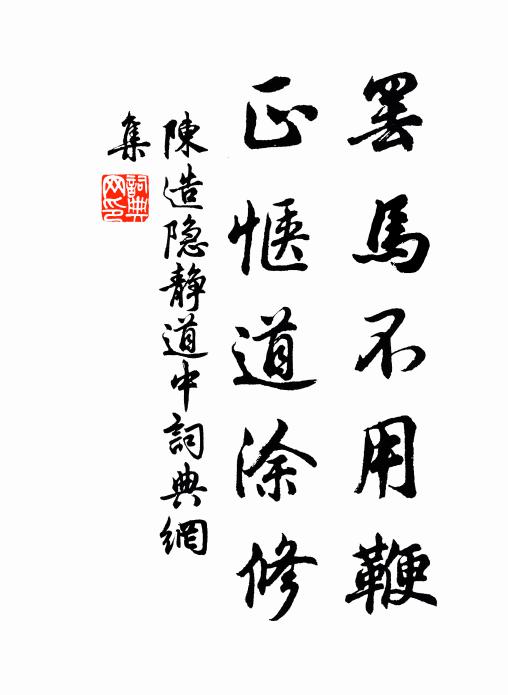 罢馬不用鞭
正惬道涂修
陳造隐静道中詞典網
集
詞典网印